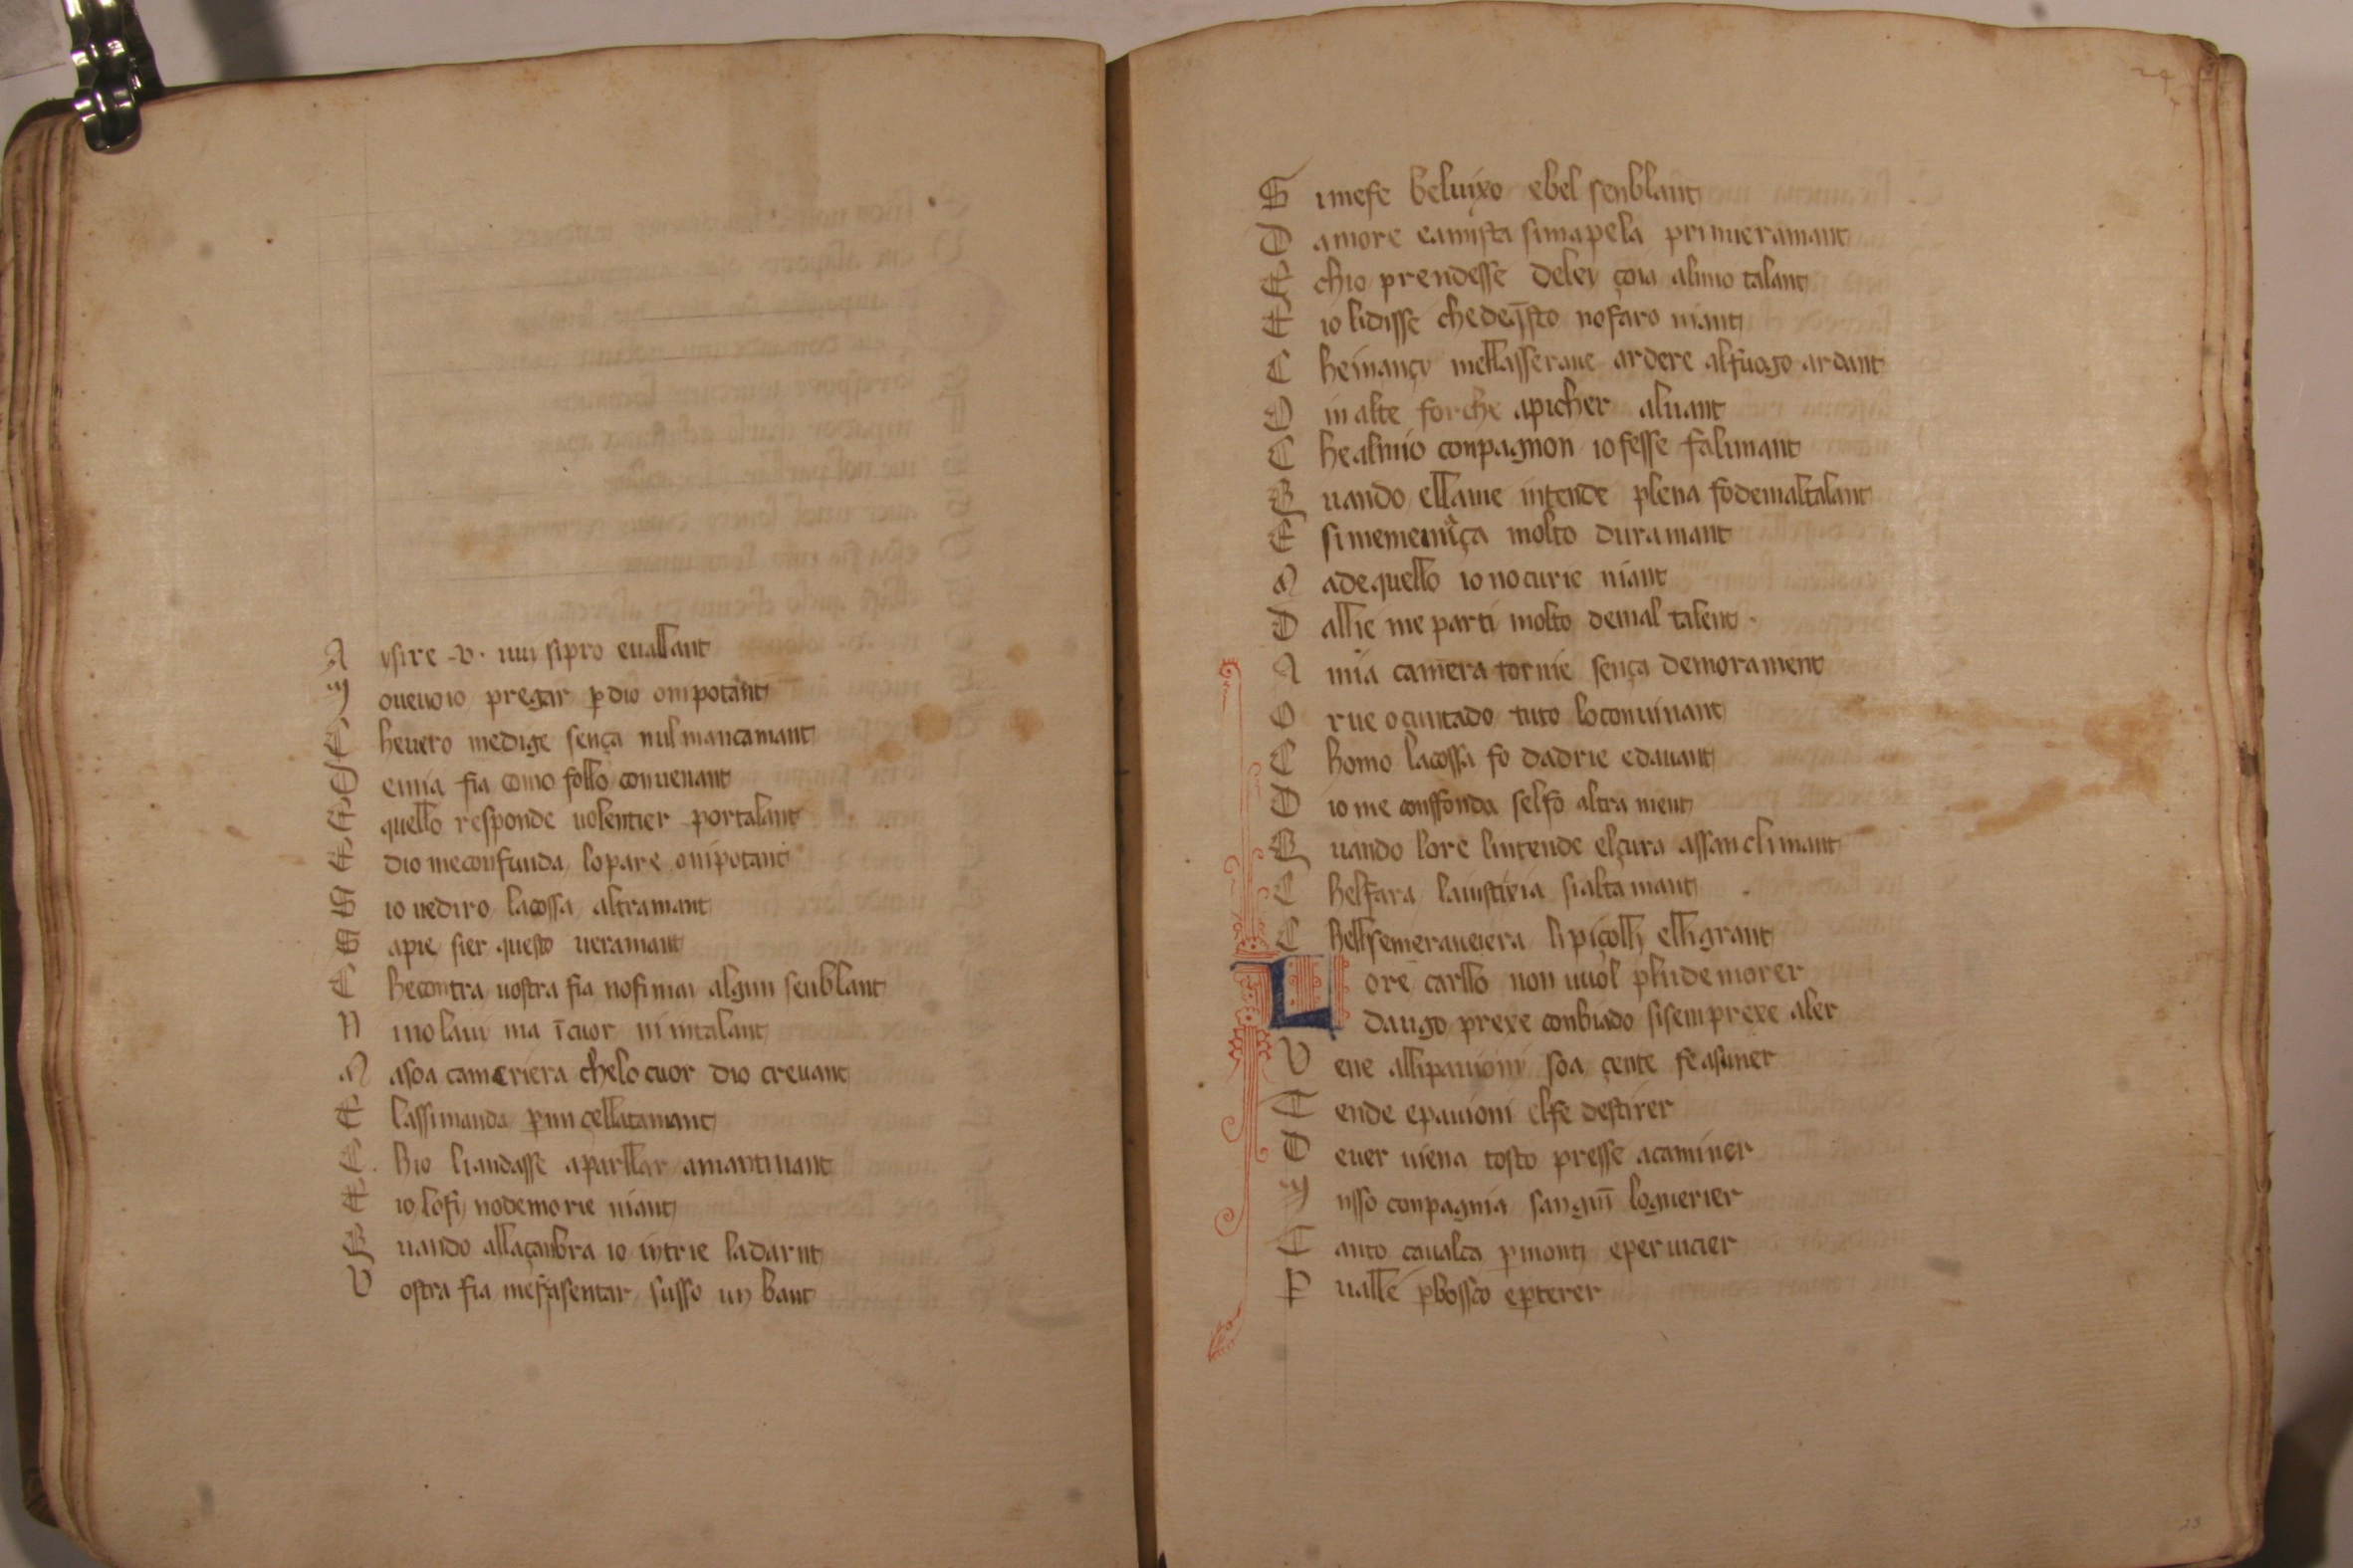 A ysire .v. uui si pro e uallant
M o ue uoio pregar p dio onipotant
C he uero me dige sença nul mancamant
D e mia fia como follo conuenant
E quello responde uolentier por talant
E dio me confunda lo pare onipotant
S io ue diro la cossa altramant
S apie sier questo ueramant
C he contra uostra fia no fi mai algun senblant
N in o l aui ma ī cuor ni in talant
A a soa cameriera che lo cuor dio creuant
E lla ssi manda p mi çellatamant
C h io li andasse a parllar amantinant
E io lo fi no demorie niant
Q uando alla çanbra io intrie la darnt
V ostra fia me fa sentar susso un bant
24
S i me fe bel uixo e bel senblant
D amore e amista si m apela primieramant
E ch io prendesse de ley çoia al mio talant
E io li disse che de q̄sto no faro niant
C he inançi me llasseraue ardere al fuogo ardant
O in alte forche apicher al uant
C he al mio conpagnon io fesse falimant
Q uando ella me intende plena fo de mal talant
E si me menaça molto duramant
M a de quello io no curie niant
D allie me parti molto de mal talent
A mia camera tornie sença demorament
O r ue o cuntado tuto lo conuinant
C homo la cossa fo dadrie e dauant
D io me conffonda sel fo altrament
Q uando lo re l intende el çura assan climant
C hel fara la iustixia si altamant
C hell se merauciera li piçolli elli grant
L o re carllo non uuol plu demorer
D a ugo prexe conbiado si se in prexe aler
V ene alli pauioni soa çente fe asuner
T ende e pauioni el fe destirer
D euer uiena tosto presse a caminer
M isso conpagnia sanguī lo guerier
T anto caualca p monti e per uicier
P ualle p bossco e p terer
23